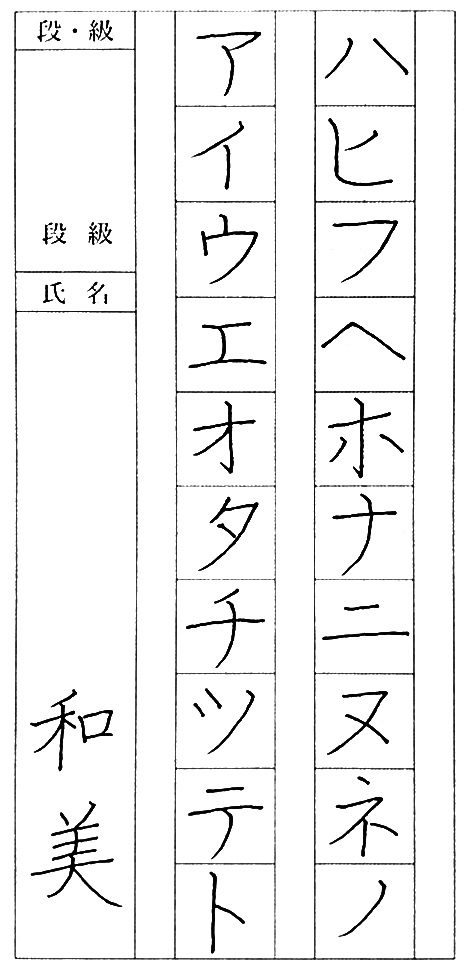 ハヒフヘホナニヌネノ
アイウエオタチツテト
段・級
段 級
氏 名
和美